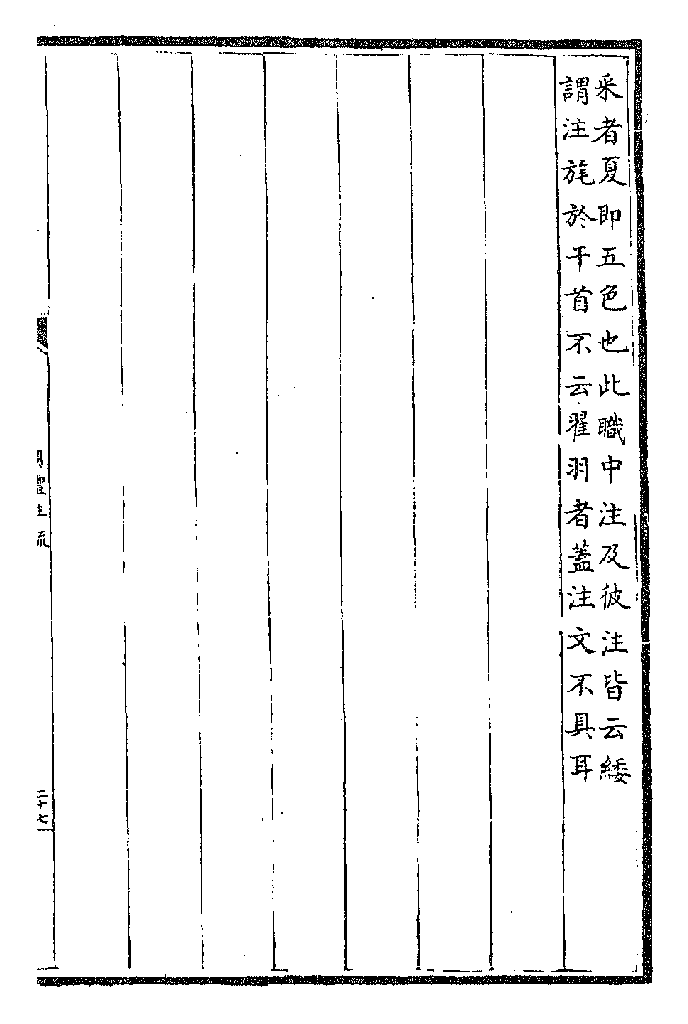 采者夏即五色也此職中注及彼注皆云緌
謂注旄於干首不云翟羽者蓋注文不具耳
周禮注疏
二十七